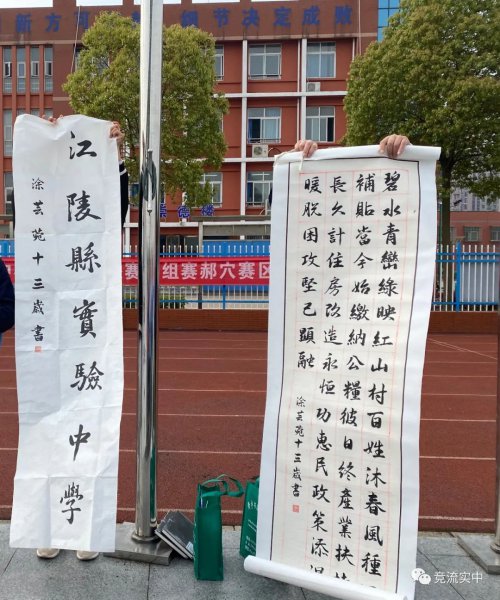 细节决定成败
組赛郝穴赛区
江陵縣實驗中學
涂芸苑十三歲書
碧水青巒綠映紅山村百姓沐春風種
補貼當今始繳納公糧彼日終產業扶
長久計住房改造永恒功惠民政策添
暖脫困攻堅已顯融
涂芸苑十三歲書
竞流实中